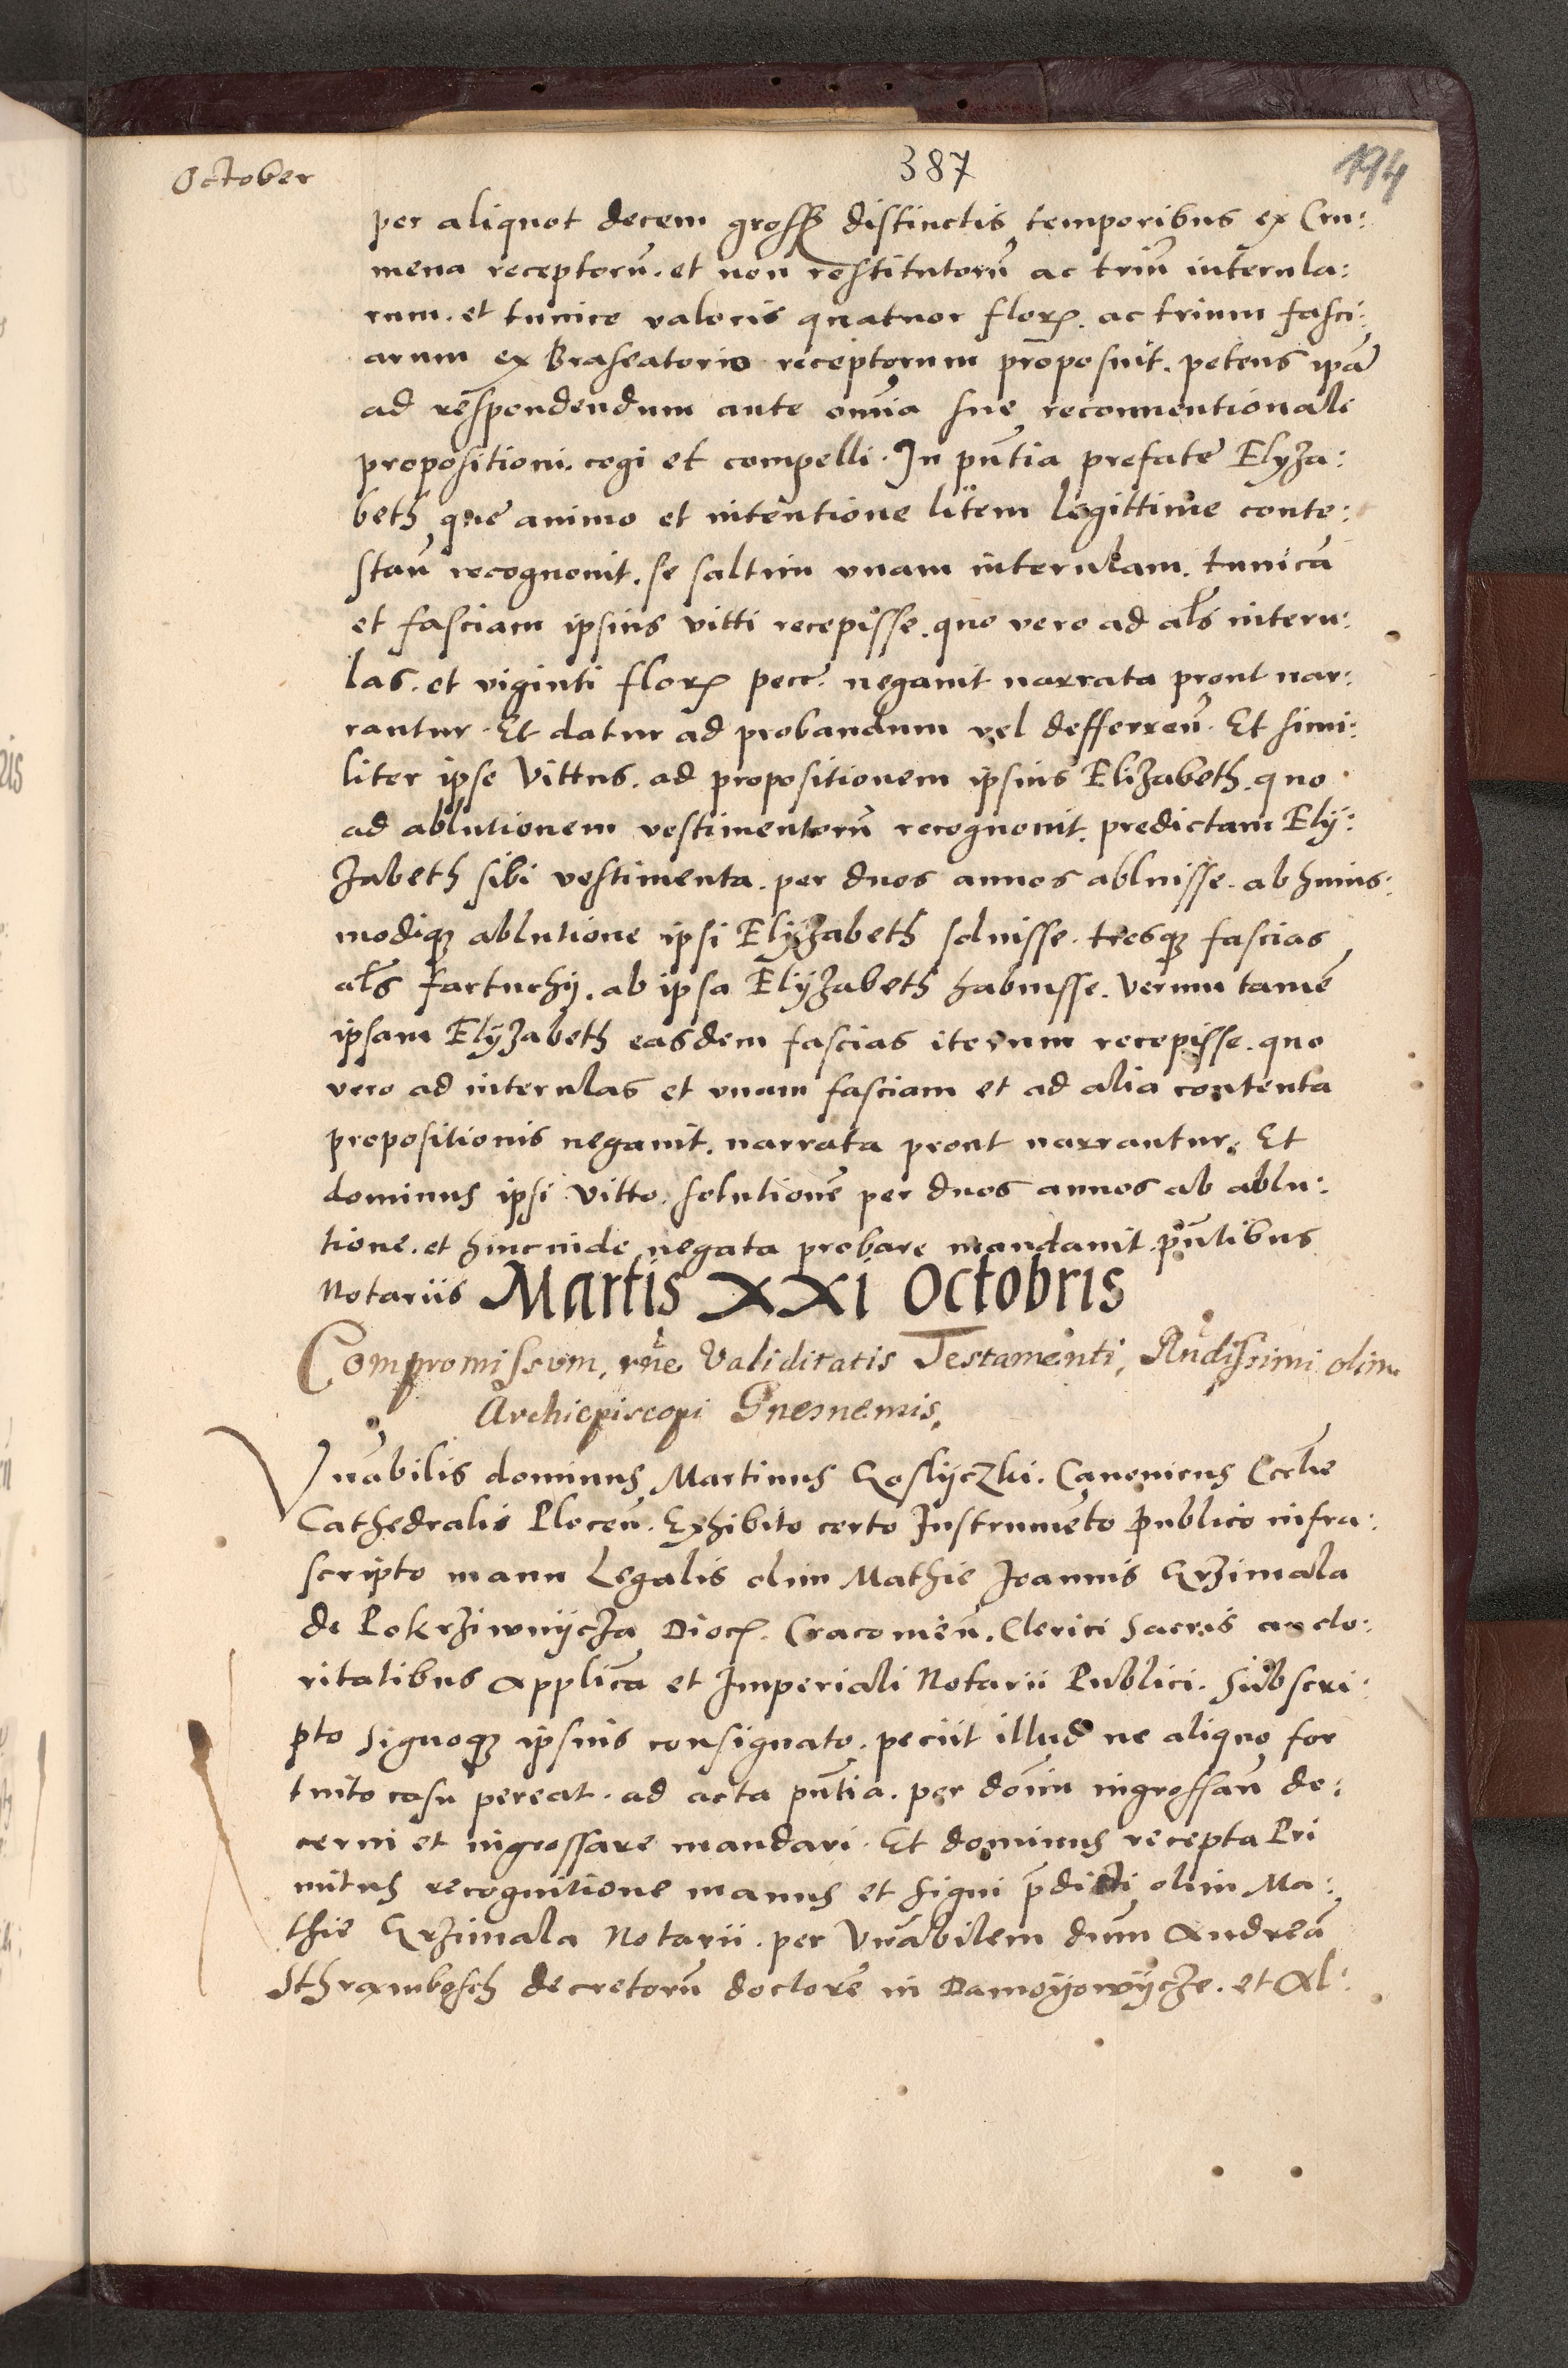 October
387
194
per aliquot decem gross distinctis temporibus ex Cru:
mena receptorū. et non restitutorū ac triū internla:
rum. et tunice valoris quatuor flor. ac trium fasci:
arum ex Braseatorio receptorum proposuit. petens ipā
ad respondendum ante omīa sue reconuentionali
propositioni. cogi et compelli. In pn̄tia prefate Elyza:
beth, que animo et intentione litem legittime conte:
stan̄ recognouit. se saltim vnam interulam. tunicā
et fasciam ipsius vitti recepisse. quo vero ad al̄s interu:
las. et viginti flor pecc. negauit narrata prout nar:
rantur. Et datur ad probandum vel defferren̄. Et simi:
liter ipse Vittus. ad propositionem ipsius Elizabeth. quo
ad ablutionem vestimentorū recognouit. predictam Ely:
zabeth sibi vestimenta. per duos annos abluisse. ab huius:
modiqz ablutione ipsi Elyzabeth soluisse. tresqz fascias
al̄s fartuchy. ab ipsa Elyzabeth habuisse. Verum tamē
ipsam Elyzabeth easdem fascias iterum recepisse. quo
vero ad interulas et vnam fasciam et ad alia contenta
propositionis negauit. narrata prout narrantur. Et
dominus ipsi vitto. solutionē per duos annos ab ablu:
tione. et hincinde negata probare mandauit. pn̄tibus
Notariis Martis xxi Octobris
Compromissum, rn̄e Validitatis Testamenti, Rn̄dissimi olim
Archiepiscopi Gnesnensis.
Vn̄abilis dominus Martinus Goslyczki. Canonicus Eccl̄ie
Cathedralis Plocen̄. Exhibito certo Instrumēto publico infra:
scripto manu Legalis olim Mathie Joannis Grzimala
de Pokrziwnycza Dioc. Cracouien̄. Clerici Sacris aucto:
ritatibus Applica et Imperiali Notarii Publici. Subscri:
pto Signoqz ipsius consignato. peciit illud ne aliquo for
tuito casu pereat. ad acta pn̄tia. per dom̄ ingrossan̄ de:
cerni et ingrossare mandari. Et dominus recepta Pri
mitus recognitione manus et signi p̄dicti olim Ma:
thie Grzimala Notarii. per Vn̄abilem dnm̄ Andreā
Sthrambosch decretorū doctorē in Damoyowycze. et Al: